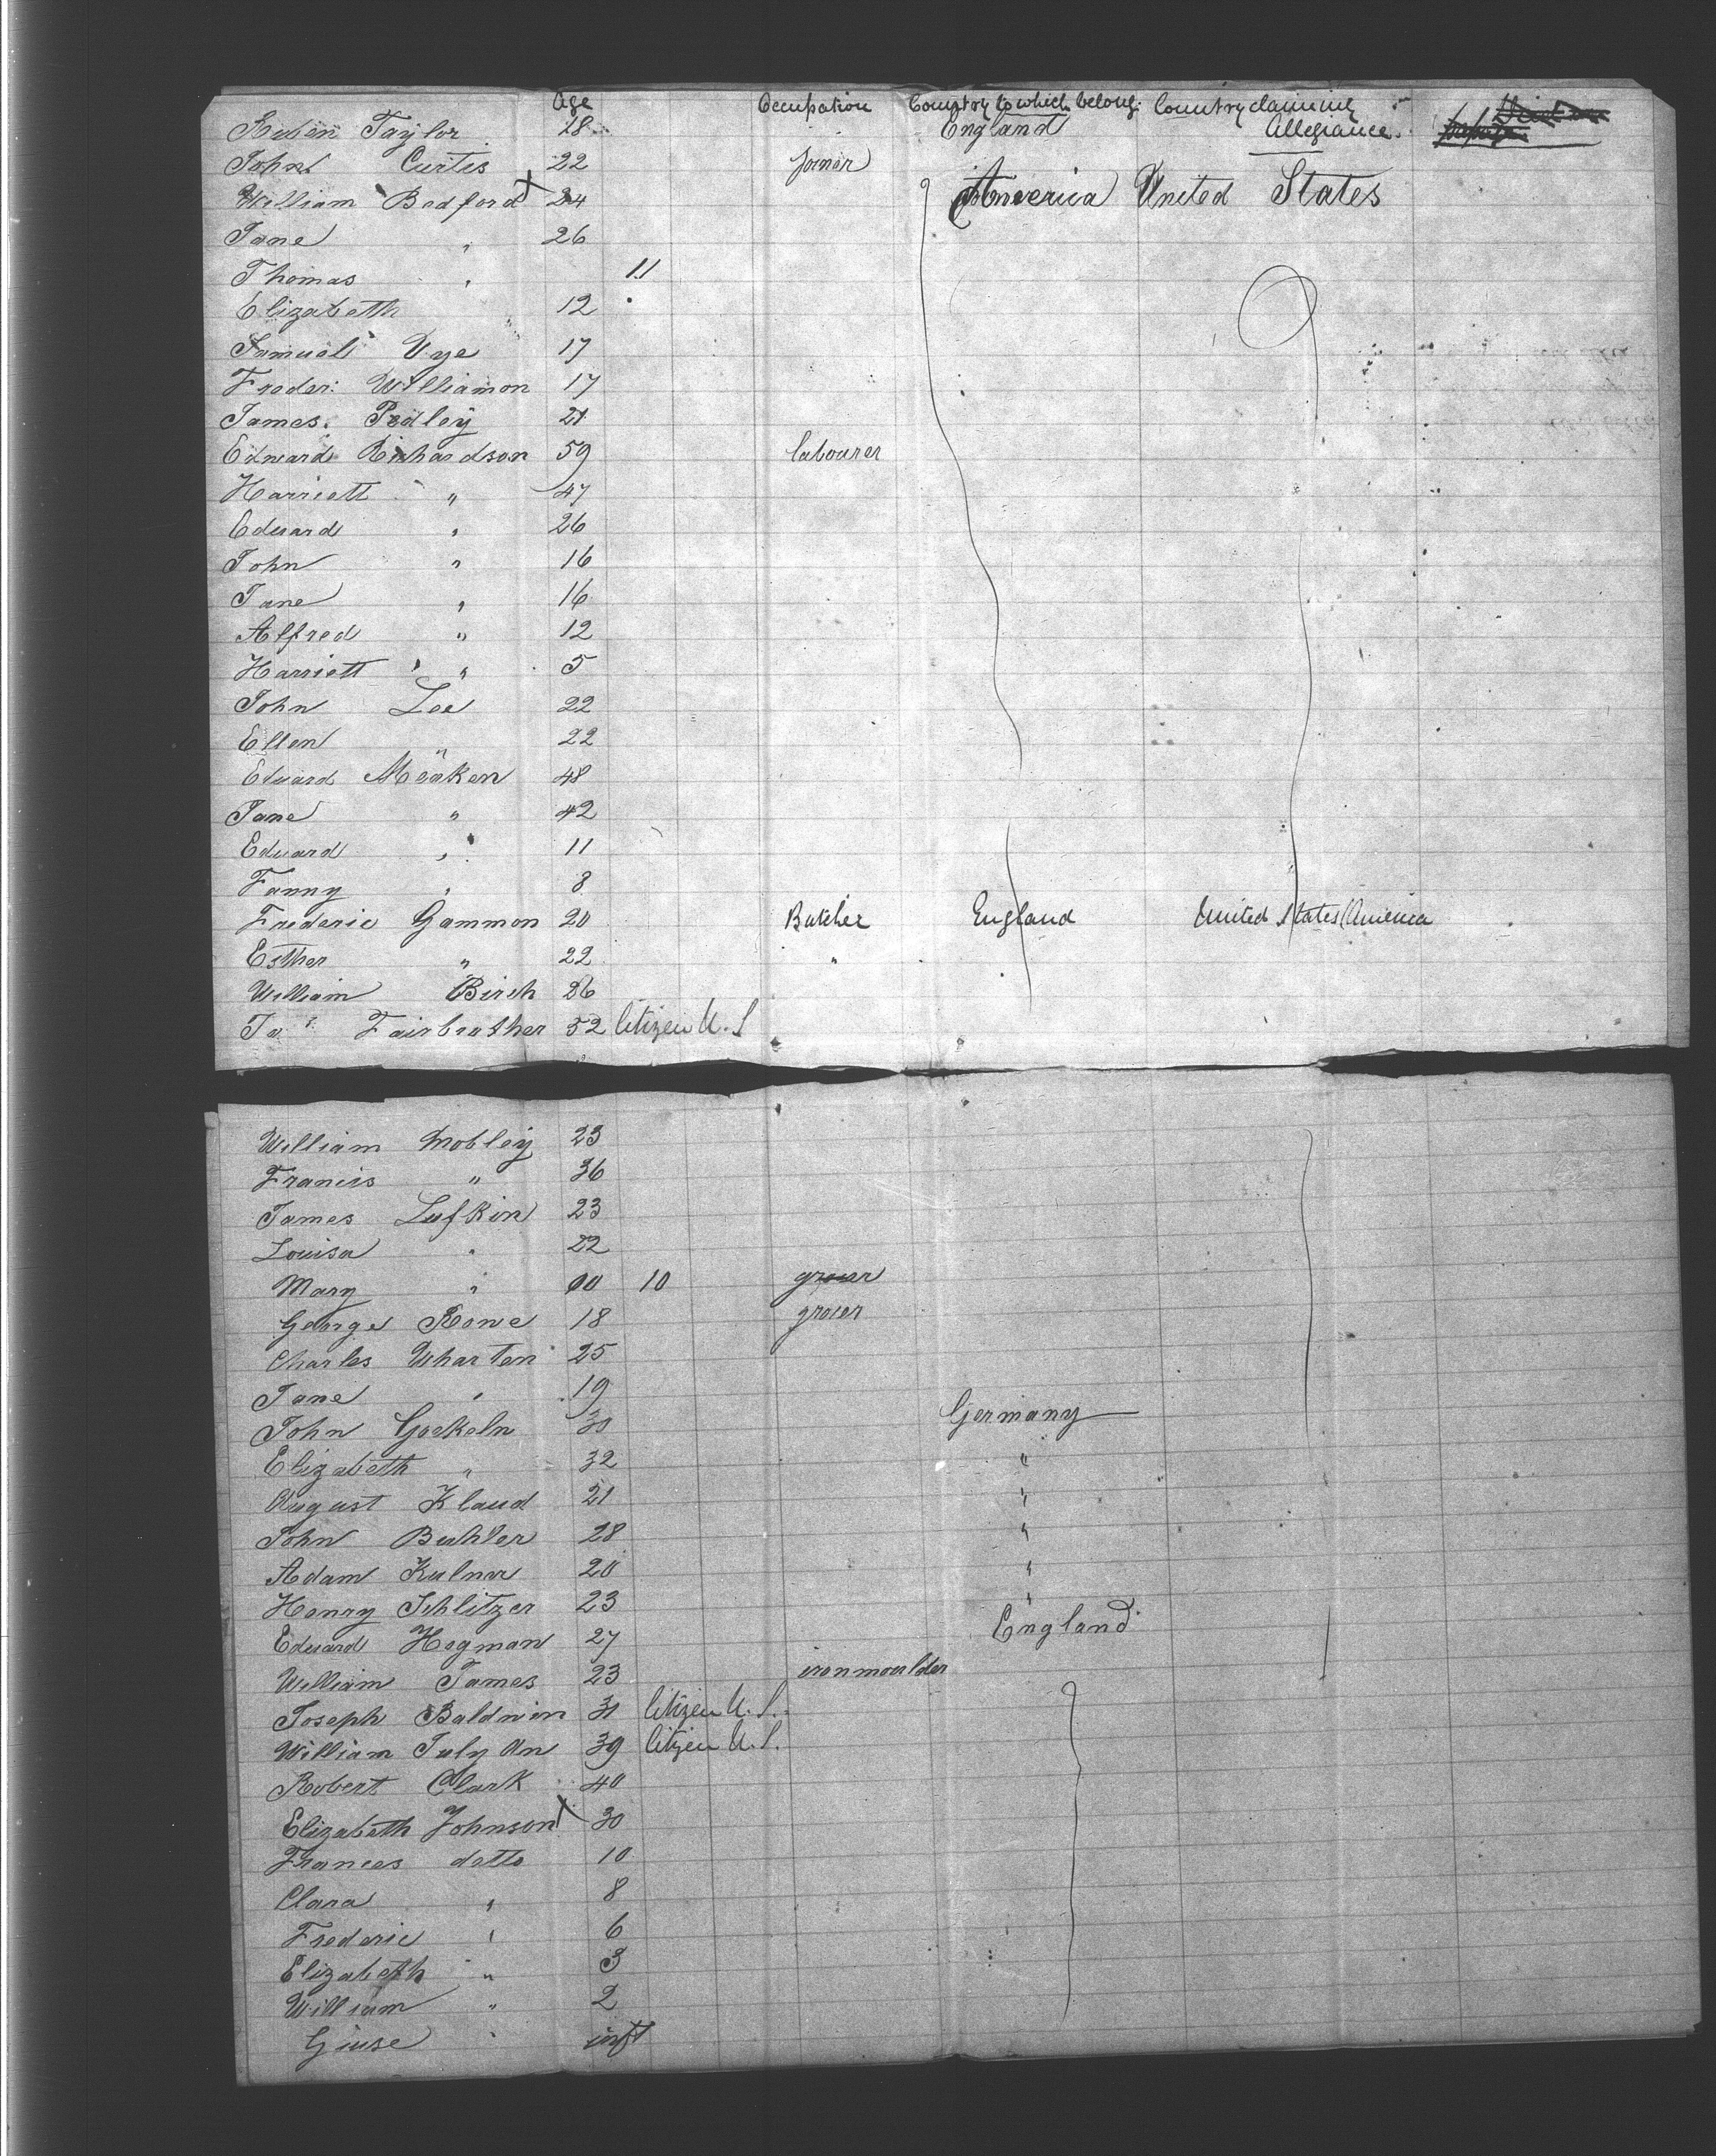 Age Occupation Country to which belong. Country claiming Allegiance.
Ruben Taylor 18 England
John Curtis 22 Joiner
William Bedford 24 America United States
Jane " 26
Thomas " 11
Elizabeth 12
Samuel Vye 17
Freder: Williamson 17
James Pedley 21
Edward Richardson 59 labourer
Harriett " 47
Edward " 26
John " 16
Jane " 16
Alfred " 12
Harriett " 5
John Lee 22
Ellen " 22
Edward Meaken 48
Jane " 42
Edward " 11
Fanny " 8
Frederic Gammon 20 Butcher England United States America
Esther " 22 "
William Birch 26
Ja Fairbrather 52 Citizen U.S
William Mobley 23
Francis " 36
James Lufkin 23
Louisa " 22
Mary " 10 grocer
George Rowe 18 grocer
Charles Wharten 25
Jane " 19
John Gockeln 30 Germany
Elizabeth " 32 "
August Klaud 21 "
John Buhler 28 "
Adam Kulnar 20 "
Henry Schlitzer 23 "
Edward Hegman 27 England
William James 23 iron moulder
Joseph Baldwin 31 Citizen U.S.
William July An 39 Citizen U.S.
Robert Clark 40
Elizabeth Johnson 30
Frances detto 10
Clara " 8
Frederic " 6
Elizabeth " 3
William " 2
" inft